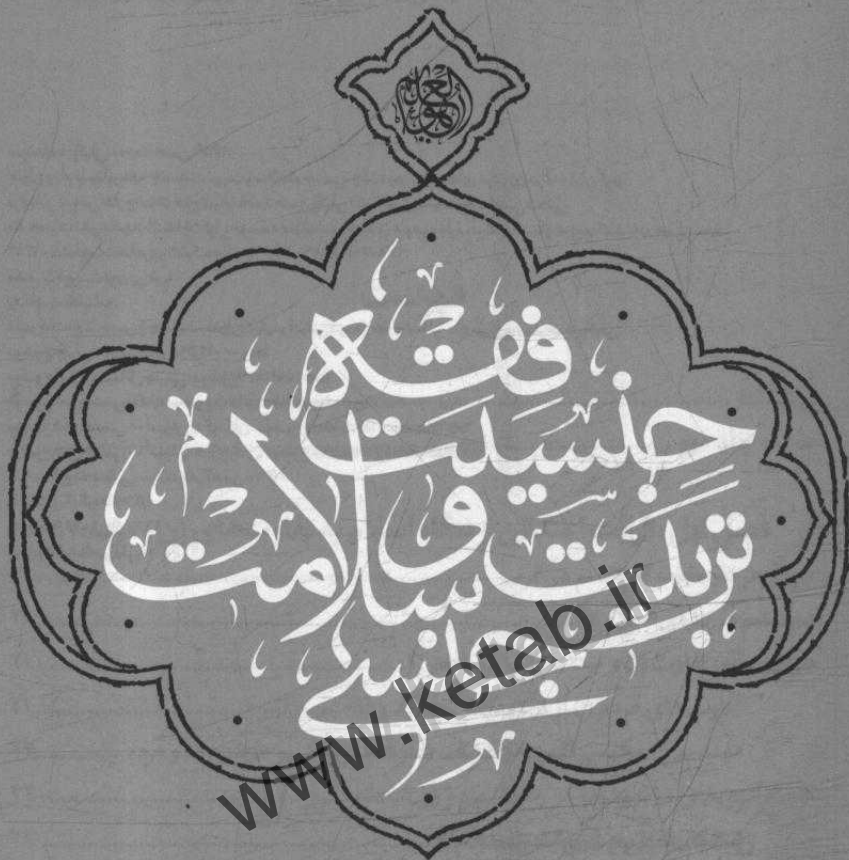 فقه
جنسیت
تربیت و سلامت
جنسی
www.ketab.ir